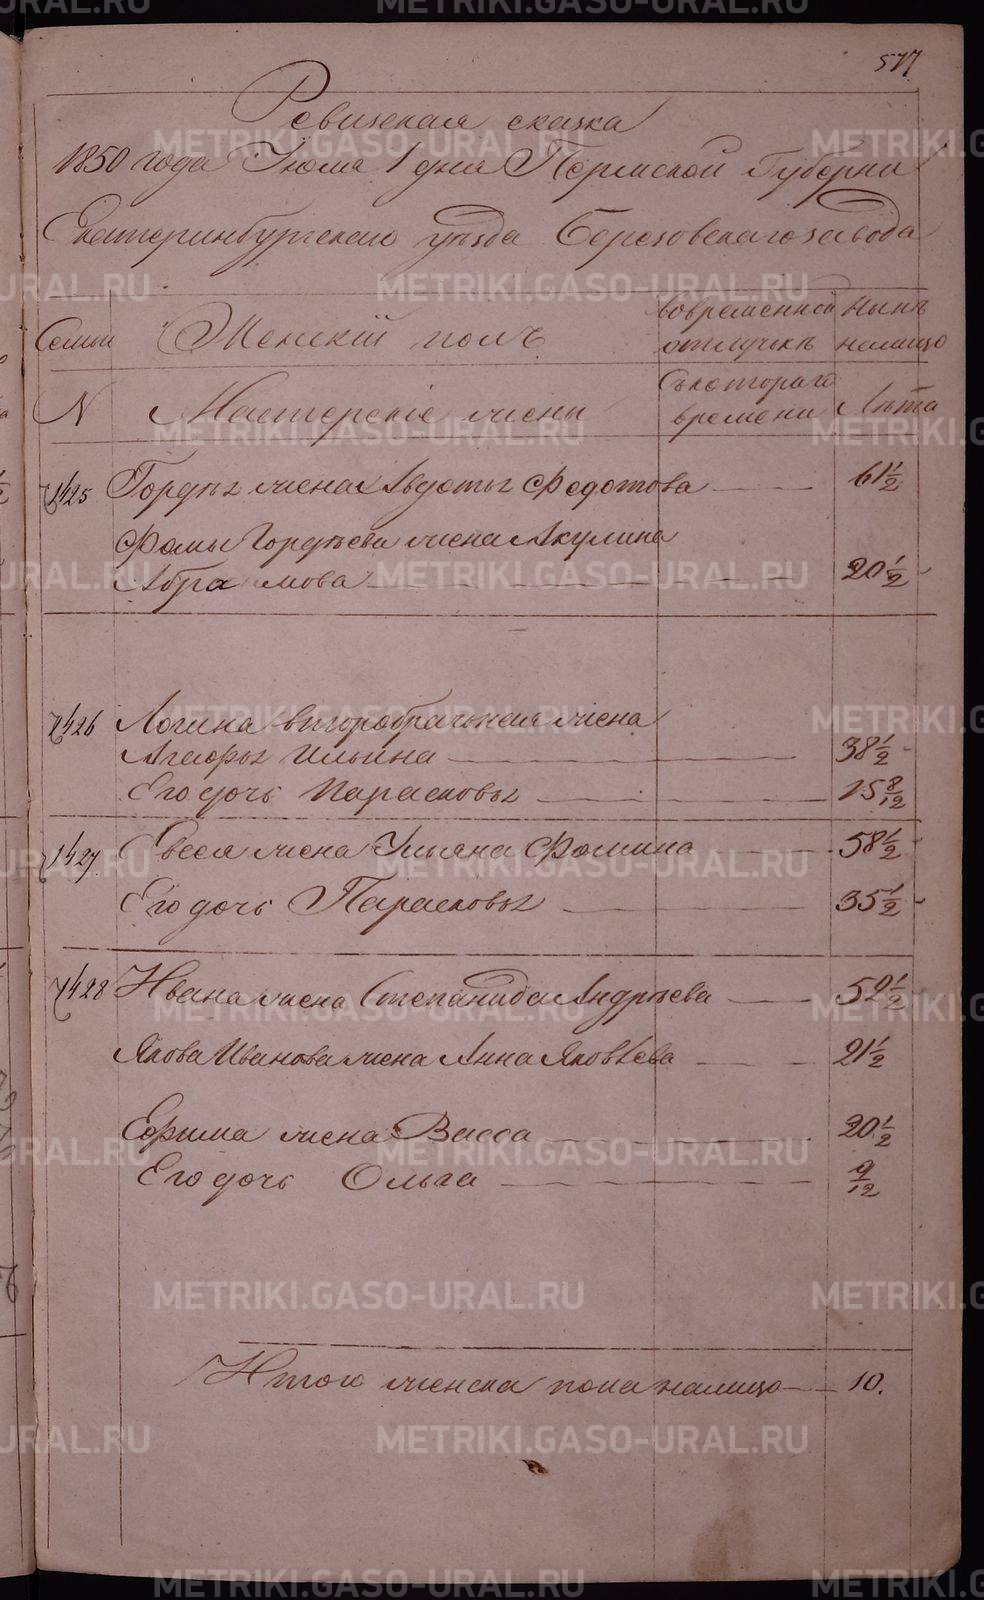 577
Ревизская сказка
1850 года Июля 1 дня Пермской Губерніи
Екатеринбургскаго уѣзда Березовскаго завода
Семьи Женскій полъ Вовременной отлучкѣ Нынѣ налицо
N Мастерскіе жены Съкотораго времени Лѣта
1425 Гордѣя жена Авдотья Федотова 61 1/2
Фомы Гордѣева жена Акулина
Абрамова 20 1/2
1426 Логина второбрачьная жена
Агафья Ильина 38 1/2
Его дочь Парасковья 15 8/12
1427 Евсея жена Ульяна Фомина 58 1/2
Его дочь Парасковья 35 1/2
1428 Ивана жена Степанида Андрѣева 52 1/2
Якова Иванова жена Анна Яковлева 21 1/2
Ефима жена Васса 20 1/2
Его дочь Ольга 9/12
Итого женска пола налицо 10.
METRIKI.GASO-URAL.RU